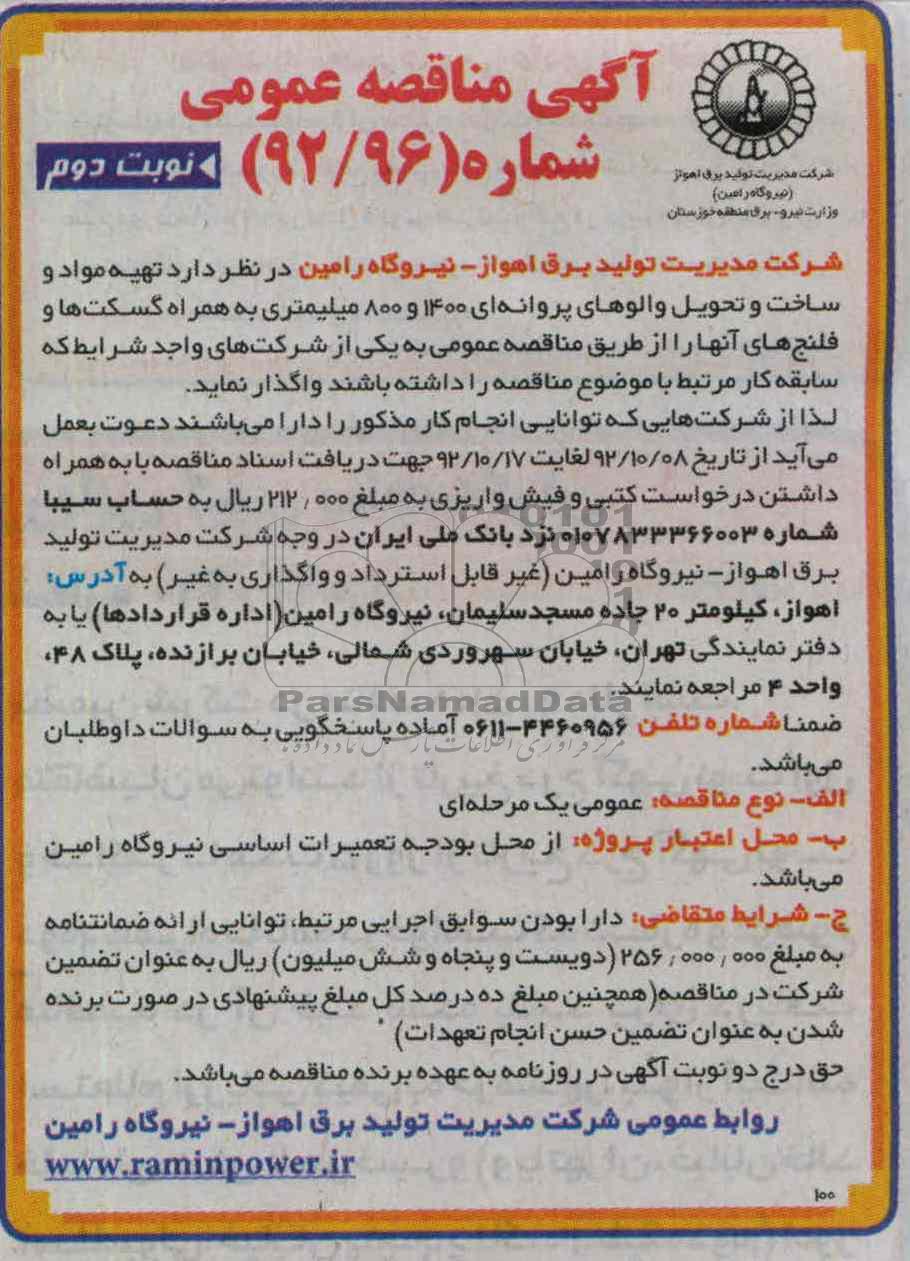 آگهی مناقصه عمومی
شماره (۹۲/۹۶)
نوبت دوم
شرکت مدیریت تولید برق اهواز
(نیروگاه رامین)
وزارت نیرو - برق منطقه خوزستان
شرکت مدیریت تولید برق اهواز - نیروگاه رامین در نظر دارد تهیه مواد و
ساخت و تحویل والوهای پروانه‌ای ۱۴۰۰ و ۸۰۰ میلیمتری به همراه گسکت‌ها و
فلنج‌های آنها را از طریق مناقصه عمومی به یکی از شرکت‌های واجد شرایط که
سابقه کار مرتبط با موضوع مناقصه را داشته باشند واگذار نماید.
لذا از شرکت‌هایی که توانایی انجام کار مذکور را دارا می‌باشند دعوت بعمل
می‌آید از تاریخ ۹۲/۱۰/۰۸ لغایت ۹۲/۱۰/۱۷ جهت دریافت اسناد مناقصه با به همراه
داشتن درخواست کتبی و فیش واریزی به مبلغ ۲۱۲,۰۰۰ ریال به حساب سیبا
شماره ۰۱۰۷۸۳۳۳۶۶۰۰۳ نزد بانک ملی ایران در وجه شرکت مدیریت تولید
برق اهواز - نیروگاه رامین (غیر قابل استرداد و واگذاری به غیر) به آدرس:
اهواز، کیلومتر ۲۰ جاده مسجدسلیمان، نیروگاه رامین (اداره قراردادها) یا به
دفتر نمایندگی تهران، خیابان سهروردی شمالی، خیابان برازنده، پلاک ۴۸،
واحد ۴ مراجعه نمایند.
ParsNamadData
ضمنا شماره تلفن ۴۴۶۰۹۵۶-۰۶۱۱ آماده پاسخگویی به سوالات داوطلبان
می‌باشد.
الف- نوع مناقصه: عمومی یک مرحله‌ای
ب- محل اعتبار پروژه: از محل بودجه تعمیرات اساسی نیروگاه رامین
می‌باشد.
ج- شرایط متقاضی: دارا بودن سوابق اجرایی مرتبط، توانایی ارائه ضمانتنامه
به مبلغ ۲۵۶,۰۰۰,۰۰۰ (دویست و پنجاه و شش میلیون) ریال به عنوان تضمین
شرکت در مناقصه (همچنین مبلغ ده درصد کل مبلغ پیشنهادی در صورت برنده
شدن به عنوان تضمین حسن انجام تعهدات)
حق درج دو نوبت آگهی در روزنامه به عهده برنده مناقصه می‌باشد.
روابط عمومی شرکت مدیریت تولید برق اهواز - نیروگاه رامین
www.raminpower.ir
۱۰۰